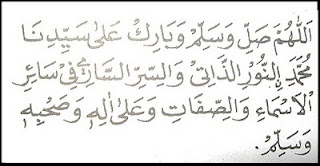 اَللّٰهُمَّ صَلِّ وَسَلِّمْ وَبَارِكْ عَلٰى سَيِّدِنَا
مُحَمَّدِ ࣙالنُّوْرِ الذَّاتِىْ وَالسِّرِّ السَّارِيْ فِيْ سَائِرِ
الْاَسْمَاءِ وَالصِّفَاتِ وَعَلٰى اٰلِهٖ وَصَحْبِهٖ
وَسَلِّمْ.